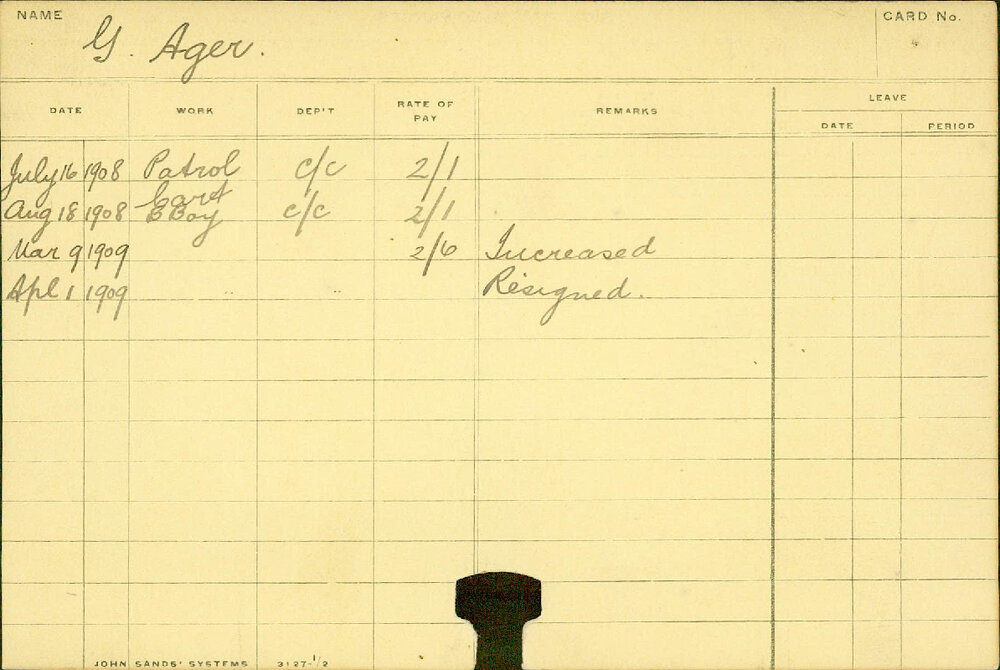 NAME CARD No.
G. Ager.
DATE WORK DEP'T RATE OF PAY REMARKS LEAVE
DATE PERIOD
July 16 1908 Patrol c/c 2/1
Aug 18 1908 Cart Boy c/c 2/1
Mar 9 1909 2/6 Increased
Apl 1 1909 Resigned.
JOHN SANDS' SYSTEMS 3127-1/2